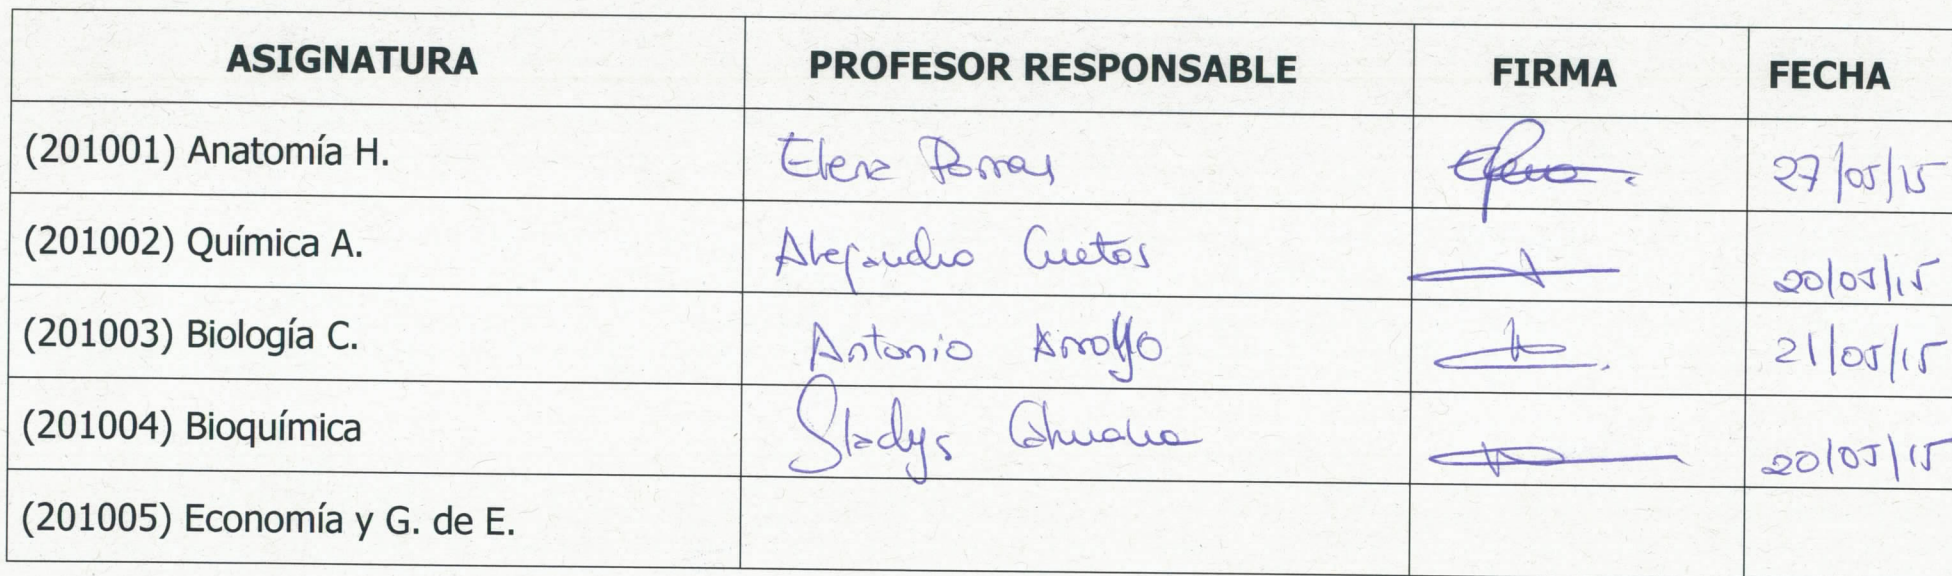 ASIGNATURA PROFESOR RESPONSABLE FIRMA FECHA
(201001) Anatomía H. Elena Porras Elena 27/05/15
(201002) Química A. Alejandro Cuetos 20/05/15
(201003) Biología C. Antonio 21/05/15
(201004) Bioquímica Gladys 20/05/15
(201005) Economía y G. de E.